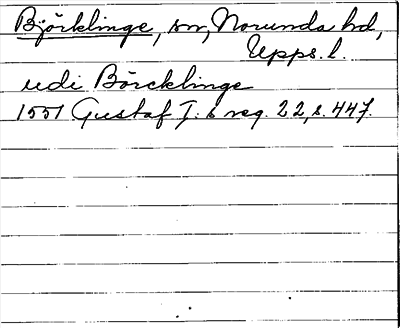 Björklinge, sn, Norunda hd,
Upps. l.
udi Börcklinge
1551 Gustaf I: s reg. 22, s. 447.